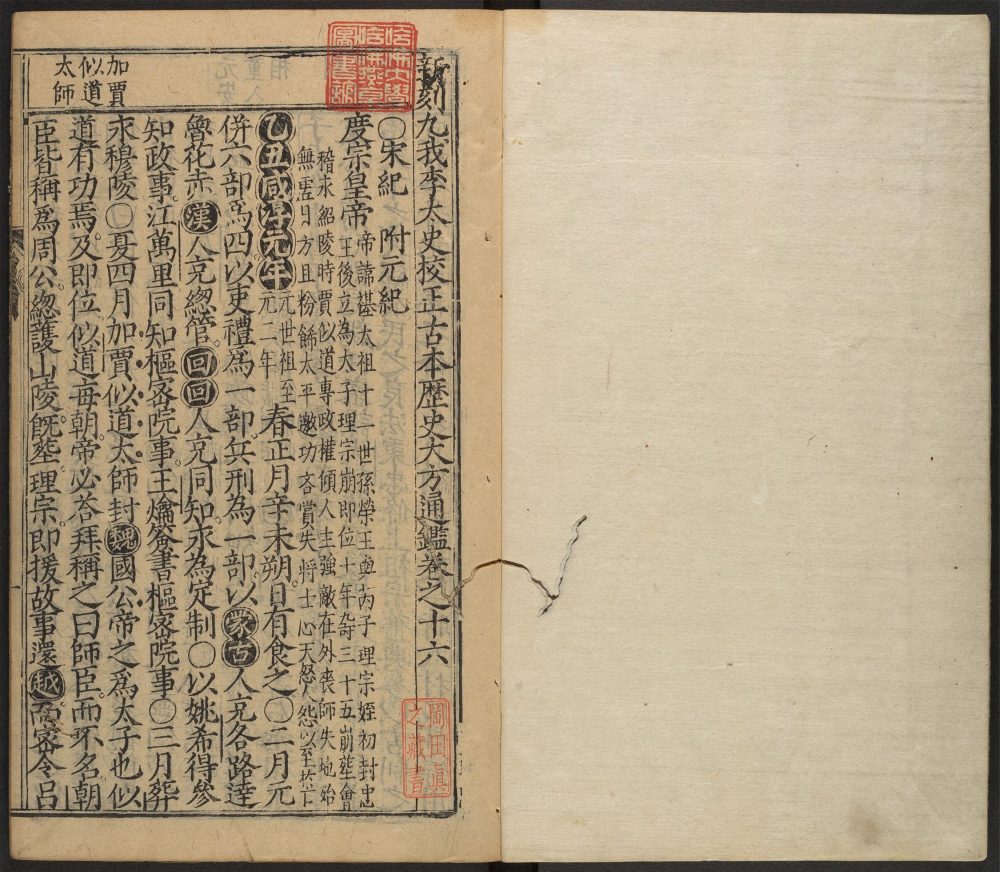 新刻九我李太史校正古本歷史大方通鑑卷之十六
○宋紀 附元紀
度宗皇帝 帝諱禥太祖十一世孫榮王與芮子理宗姪初封忠
王後立為太子理宗崩即位十年壽三十五崩塟會
稽永紹陵時賈似道專政權傾人主強敵在外喪師失地始
無虛日方且粉餙太平邀功吝賞失將士心天怒人怨以至於亡
乙丑咸淳元年 元世祖至
元二年 春正月辛未朔日有食之○二月元
併六部爲四以吏禮爲一部兵刑為一部以蒙古人充各路達
魯花赤漢人充總管回回人充同知永為定制○以姚希得參
知政事江萬里同知樞密院事王爚簽書樞密院事○三月葬
永穆陵○夏四月加賈似道太師封魏國公帝之爲太子也似
道有功焉及即位似道每朝帝必答拜稱之曰師臣而不名朝
臣皆稱爲周公緫護山陵旣塟理宗即援故事還越而密令呂
加賈
似道
太師
哈佛大學
哈佛燕京
圖書館
岡田真
之藏書